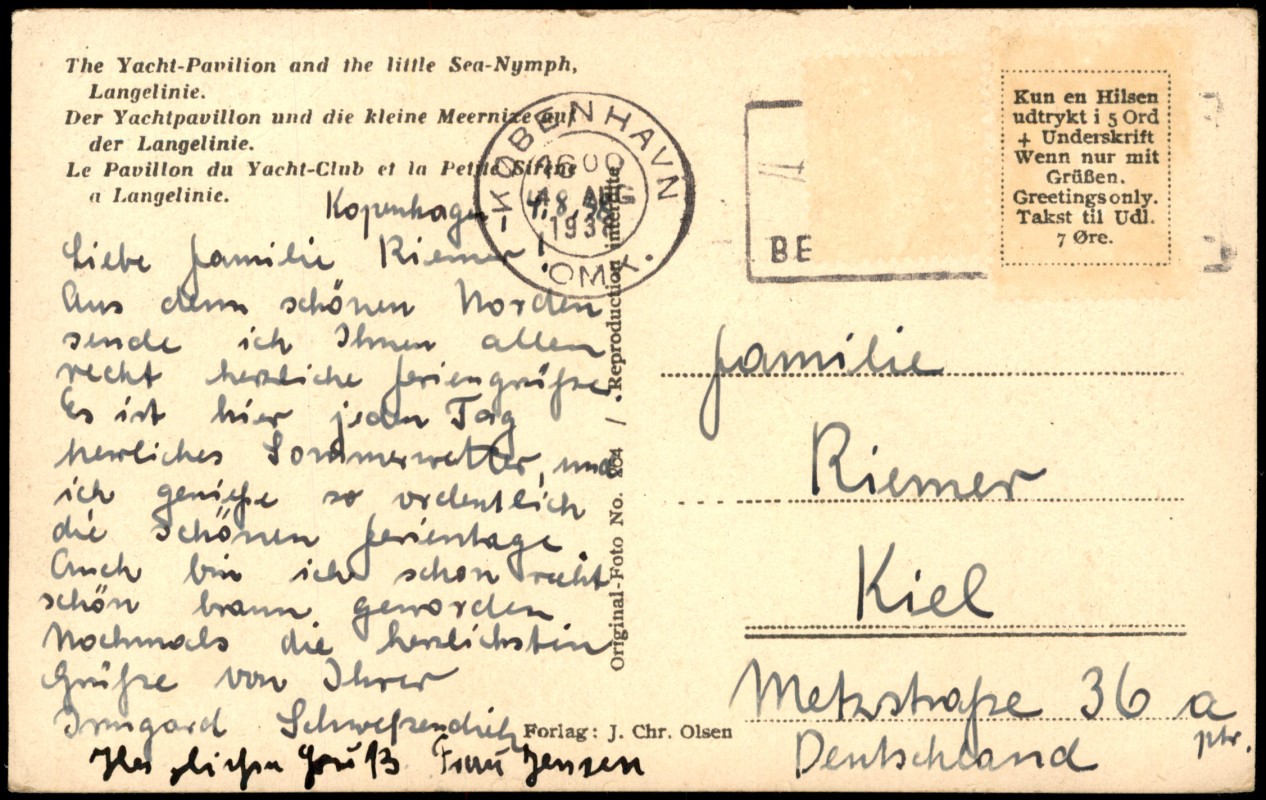 The Yacht-Pavilion and the little Sea-Nymph,
Langelinie.
Der Yachtpavillon und die kleine Meernixe auf
der Langelinie.
Le Pavillon du Yacht-Club et la Petite Sirène
a Langelinie.
KØBENHAVN
1600
OMK.
BE
Kun en Hilsen
udtrykt i 5 Ord
+ Underskrift
Wenn nur mit
Grüßen.
Greetings only.
Takst til Udl.
7 Øre.
Kopenhagen
Liebe Familie Riemer!
Aus dem schönen Norden
sende ich Ihnen allen
recht herzliche Feriengrüße.
Es ist hier jeden Tag
herrliches Sommerwetter, und
ich genieße so ordentlich
die schönen Ferientage.
Auch bin ich schon recht
schön braun geworden
Nochmals die herzlichsten
Grüße von Ihrer
Irmgard
Gruß Frau Jensen
Original-Foto No. 264 / Reproduction interdite
Forlag: J. Chr. Olsen
Familie
Riemer
Kiel
Metzstraße 36 a
ptr.
Deutschland